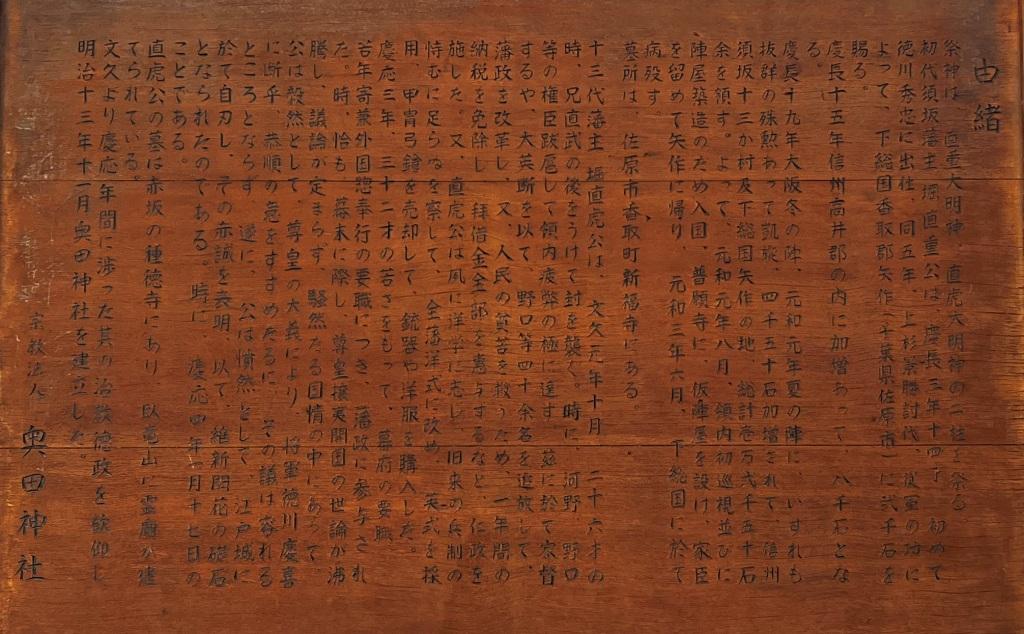 由緒
祭神は、直重大明神、直虎大明神の二柱を祭る
初代須坂藩主堀直重公は、慶長三年十四才、初めて
徳川秀忠に出仕、同五年、上杉景勝討代、従軍の功に
よって、下総国香取郡矢作(千葉県佐原市)に弐千石を
賜る。
慶長十五年信州高井郡の内に加増あって、八千石とな
る。
慶長十九年大阪冬の陣、元和元年夏の陣に、いずれも
抜群の殊勲あって凱旋、四千五十石加増されて、信州
須坂十三か村及下総国矢作の地、総計壱万弐千五十石
余を領す。よって、元和元年八月、領内初巡視並びに
陣屋築造のため入国、普願寺に、仮陣屋を設け、家臣
を留めて矢作に帰り、元和三年六月、下総国に於て
病歿す
墓所は、佐原市香取町新福寺にある。
十三代藩主堀直虎公は、文久元年十月二十六才の
時、兄直武の後をうけて封を襲ぐ。時に、河野、野口
等の権臣跋扈して領内疲弊の極に達す。茲に於て家督
するや、大英断を以て、野口等四十余名を追放して、
藩政を改革し、又、人民の貧苦を救うため、一年間の
納税を免除し、拝借金全部を恵与するなど、仁政を
施した。又、直虎公は夙に洋学に志し、旧来の兵制の
恃むに足らぬを察して、全藩洋式に改め、英式を採
用、甲冑弓鎗を売却して、銃器や洋服を購入した。
慶応三年、三十二才の若さをもって、幕府の要職
若年寄兼外国惣奉行の要職につき、藩政に参与され
た。時、恰も、幕末に際し、尊皇攘夷開国の世論が沸
騰し、議論が定まらず、騒然たる国情の中にあって、
公は毅然として、尊皇の大義により、将軍徳川慶喜
に断乎、恭順の意をすすめたるに、その議は容れる
ところとならず、遂に、公は憤然として、江戸城に
於て自刃し、その赤誠を表明、以て、維新開花の礎石
となられたのである。時に、慶応四年一月十七日の
ことである。
直虎公の墓は赤坂の種徳寺にあり、臥竜山に霊廟が建
てられている。
文久より慶応年間に渉った其の治教徳政を欽仰し
明治十三年十一月奥田神社を建立した。
宗教法人 奥田神社